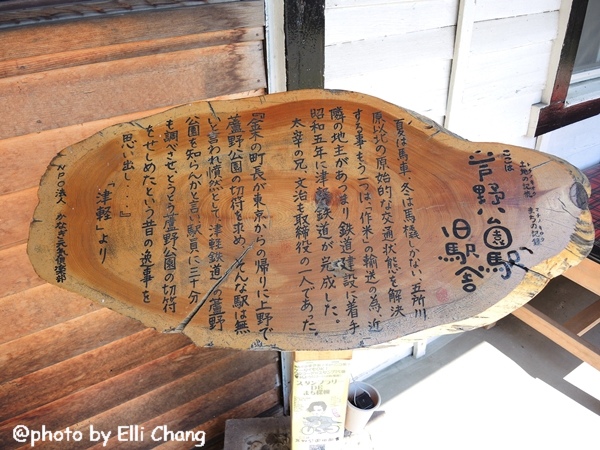 ここは
芦野公園駅
旧駅舎
夏は馬車、冬は馬橇しかない五所川
原以北の原始的な交通状態を解決
する事もう一つは「作米」の輸送の為、近
隣の地主があつまり鉄道建設に着手、
昭和五年に津軽鉄道が完成した。
太宰の兄、文治も取締役の一人であった。
『金木の町長が東京からの帰りに上野で
蘆野公園の切符を求め、そんな駅は無
いと言われ憤然として、津軽鉄道の蘆野
公園を知らんかと言い駅員に三十分
も調べさせとうとう蘆野公園の切符
をせしめたという昔の逸事を
思い出し・・・』
「津軽」より
NPO法人 かなぎ元気倶楽部
スタンプラリー
DE
まち探検
@photo by Elli Chang